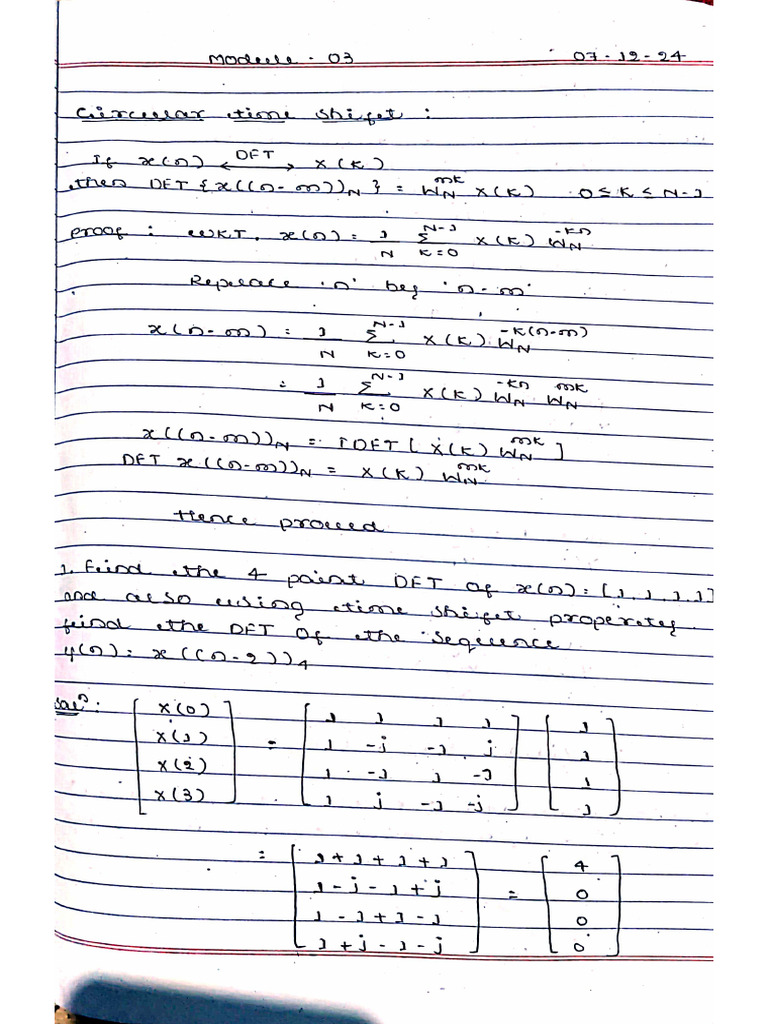 Module - 03 07-12-24
Circular time shift :
If x(n) <--DFT--> X(K)
then DFT {x((n-m))_N} = W_N^{mk} X(K) 0 ≤ K ≤ N-1
proof : WKT, x(n) = 1/N Σ_{K=0}^{N-1} X(K) W_N^{-kn}
Replace 'n' by 'n-m'
x(n-m) = 1/N Σ_{K=0}^{N-1} X(K) W_N^{-K(n-m)}
= 1/N Σ_{K=0}^{N-1} X(K) W_N^{-kn} W_N^{mk}
x((n-m))_N = IDFT [X(K) W_N^{mk}]
DFT x((n-m))_N = X(K) W_N^{mk}
Hence proved
1. Find the 4 point DFT of x(n) = [1, 1, 1, 1]
and also using time shift property
find the DFT of the sequence
y(n) = x((n-2))_4
Sol^n : [X(0) X(1) X(2) X(3)] = [1 1 1 1; 1 -j -1 j; 1 -1 1 -1; 1 j -1 -j] [1 1 1 1]
= [1+1+1+1; 1-j-1+j; 1-1+1-1; 1+j-1-j] = [4 0 0 0]